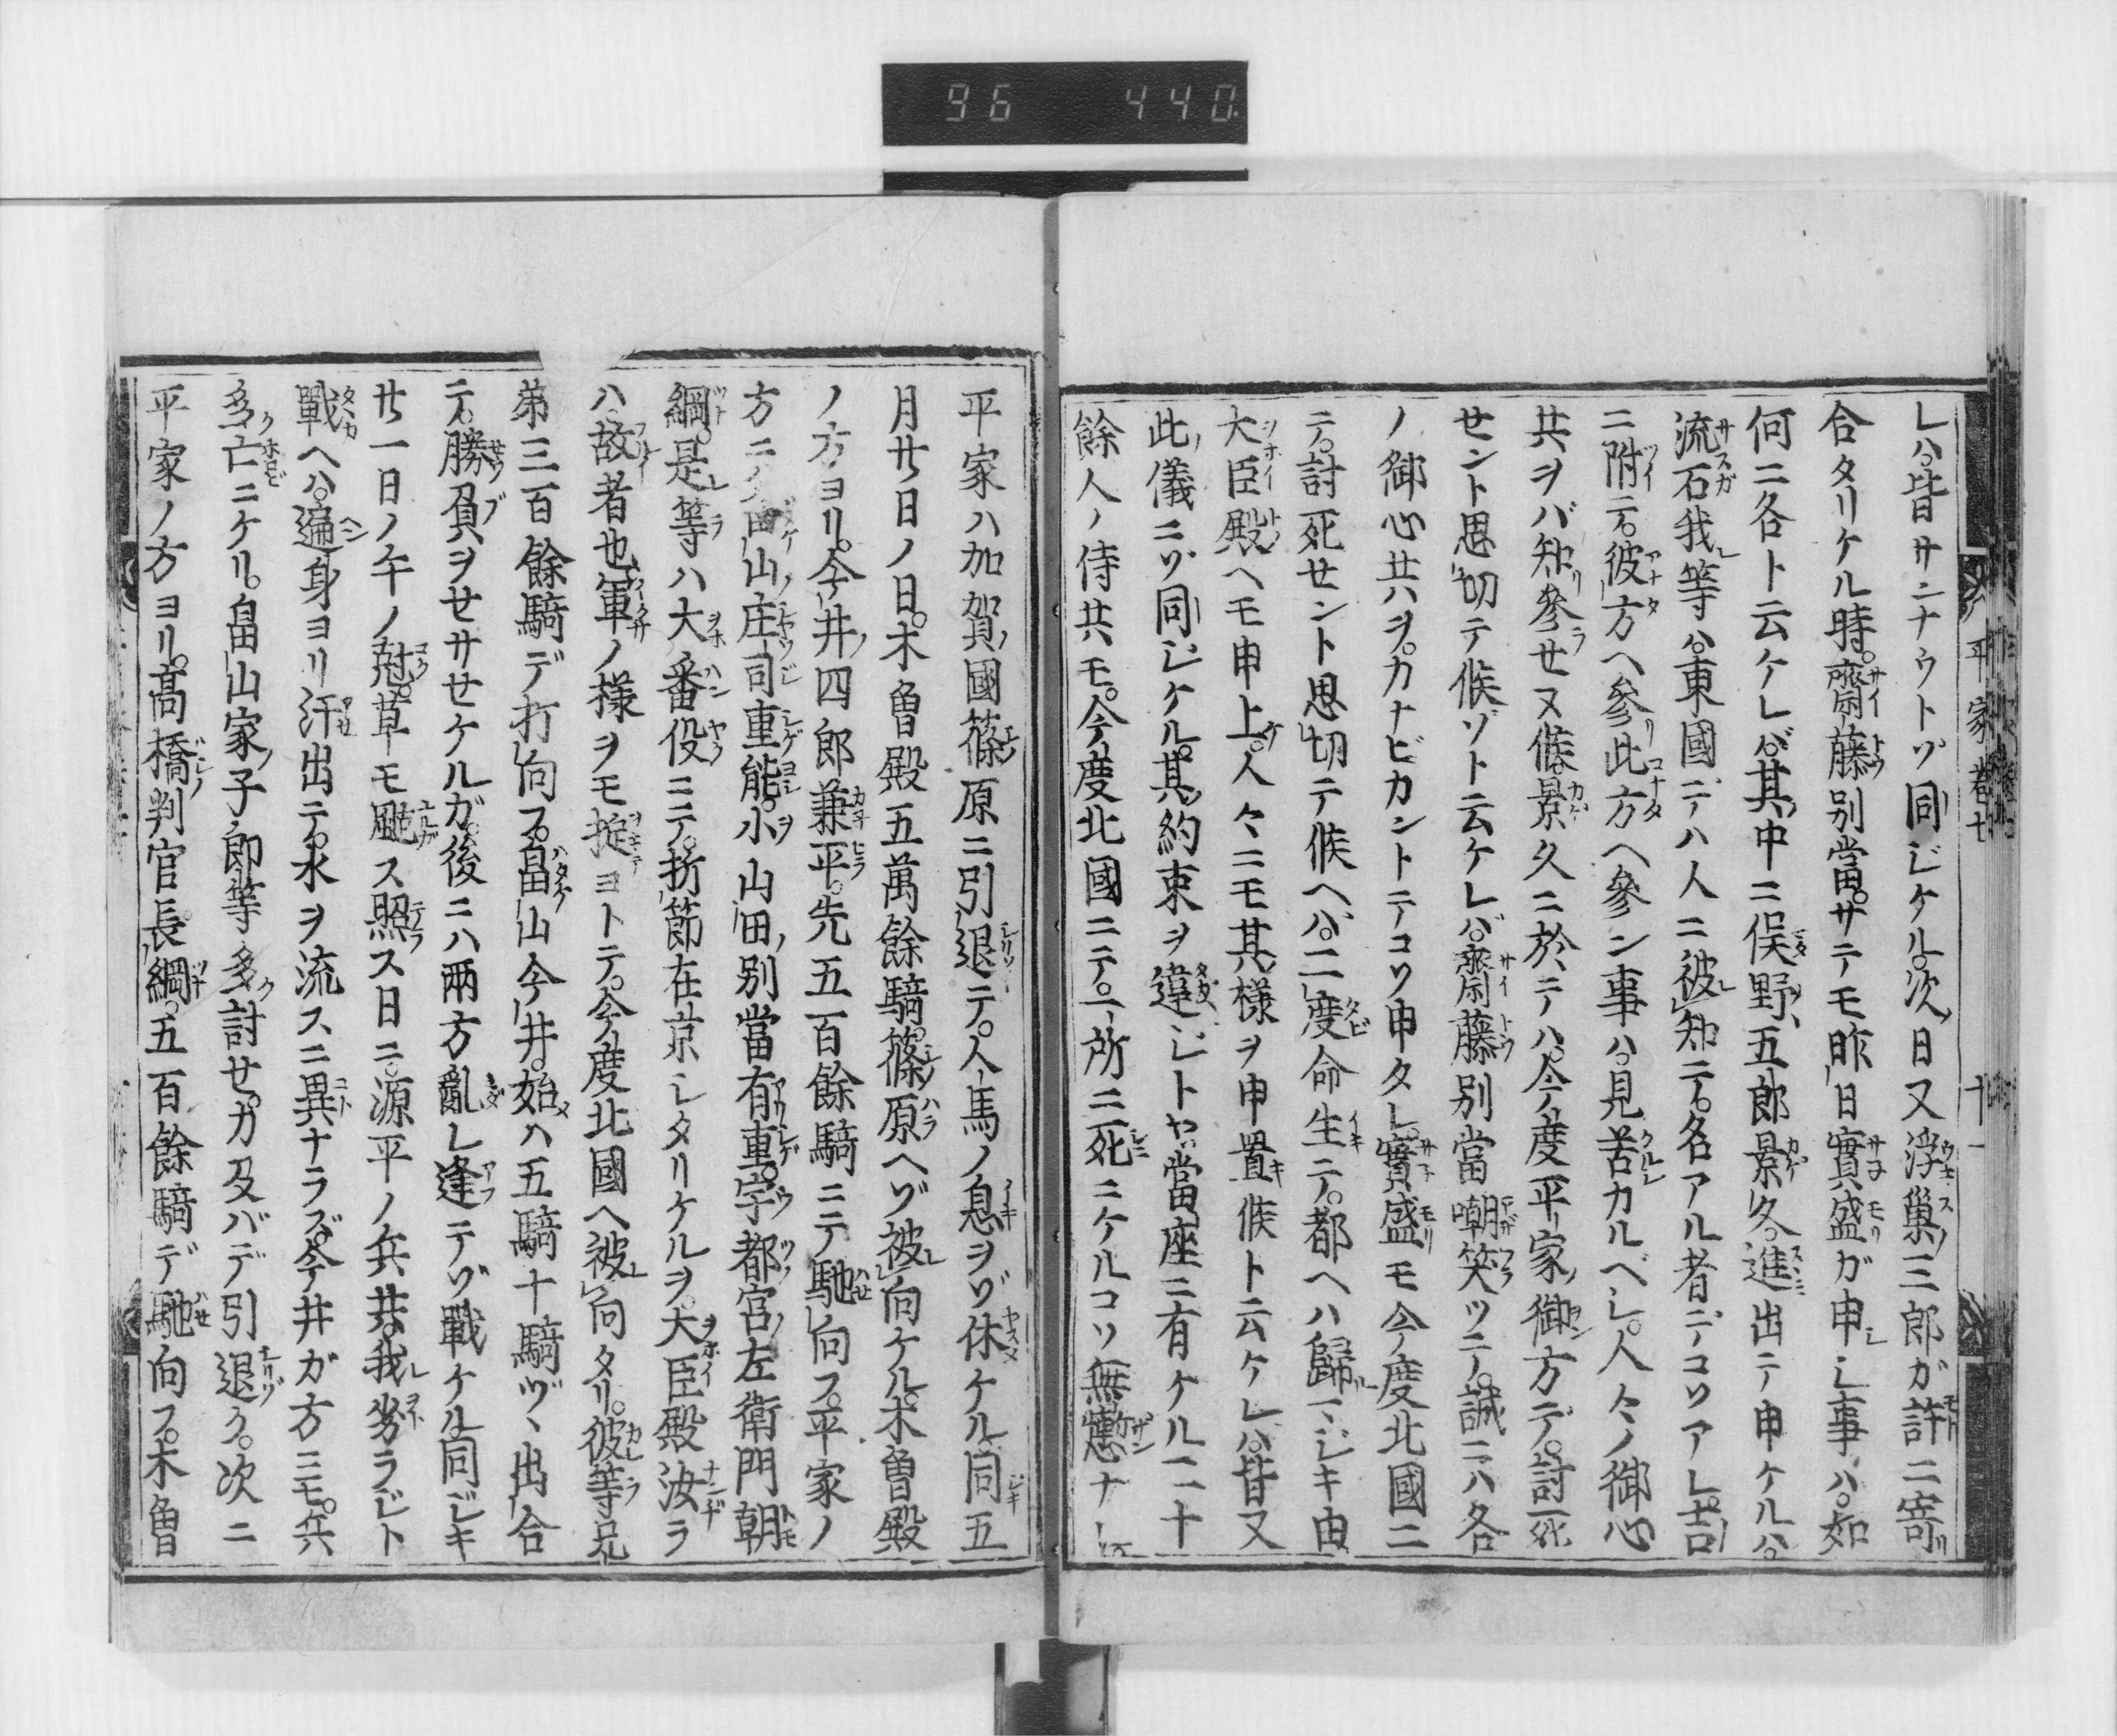 96 440
平家巻七 十一
レハ皆サンナウトゾ同ジケル次ノ日又浮巣三郎ガ許ニ寄
合タリケル時。齋藤別當。サテモ昨日實盛ガ申シ事ハ。如
何ニ各ト云ケレバ。其中ニ俣野ノ五郎景久。進出テ申ケルハ。
流石我等ハ。東國デハ人ニ被知テ。名アル者デコソアレ。吉
ニ附テ。彼方ヘ參此方ヘ參ン事ハ。見苦カルベシ。人々ノ御心
共ヲバ知參セヌ候。景久ニ於テハ。今度平家ノ御方デ。討死
セント思切テ候ゾト云ケレバ。齋藤別當嘲笑ツテ。誠ニハ各
ノ御心共ハヲ。カナビカントテコソ申タレ。實盛モ今度北國ニ
テ。討死セント思切テ候ヘバ。二度命生テ。都ヘハ歸マジキ由
大臣殿ヘモ申上。人々ニモ其様ヲ申置候ト云ケレハ。皆又
此儀ニゾ同ジケル。其約束ヲ違ジトヤ。當座ニ有ケル二十
餘人ノ侍共モ。今度北國ニテ。一所ニ死ニケルコソ無慙ナレ
平家ハ加賀ノ國篠原ニ引退テ。人馬ノ息ヲゾ休ケル。同五
月廿日ノ日。木曽殿五萬餘騎。篠原ヘゾ被向ケル。木曽殿
ノ方ヨリ。今井ノ四郎兼平。先五百餘騎ニテ馳向フ。平家ノ
方ニハ畠山ノ庄司重能。小山田ノ別當有重。宇都宮ノ左衛門朝
綱。是等ハ大番役ニテ。折節在京シタリケルヲ。大臣殿汝ラ
ハ。故者也。軍ノ様ヲモ掟ヨトテ。今度北國ヘ被向タリ。彼等兄
弟三百餘騎デ打向フ。畠山今井。始ハ五騎十騎ヅヽ出合
テ。勝負ヲセサセケルガ。後ニハ兩方亂レ逢テゾ戰ケル。同ジキ
廿一日ノ午ノ尅。草モ颭ス照ス日ニ。源平ノ兵共。我劣ラジト
戰ヘハ。遍身ヨリ汗出テ。水ヲ流スニ異ナラズ。今井ガ方ニモ。兵
多亡ニケリ。畠山家ノ子郎等多討セ。カ及バデ引退ク。次ニ
平家ノ方ヨリ。髙橋ノ判官長綱。五百餘騎デ馳向フ。木曽